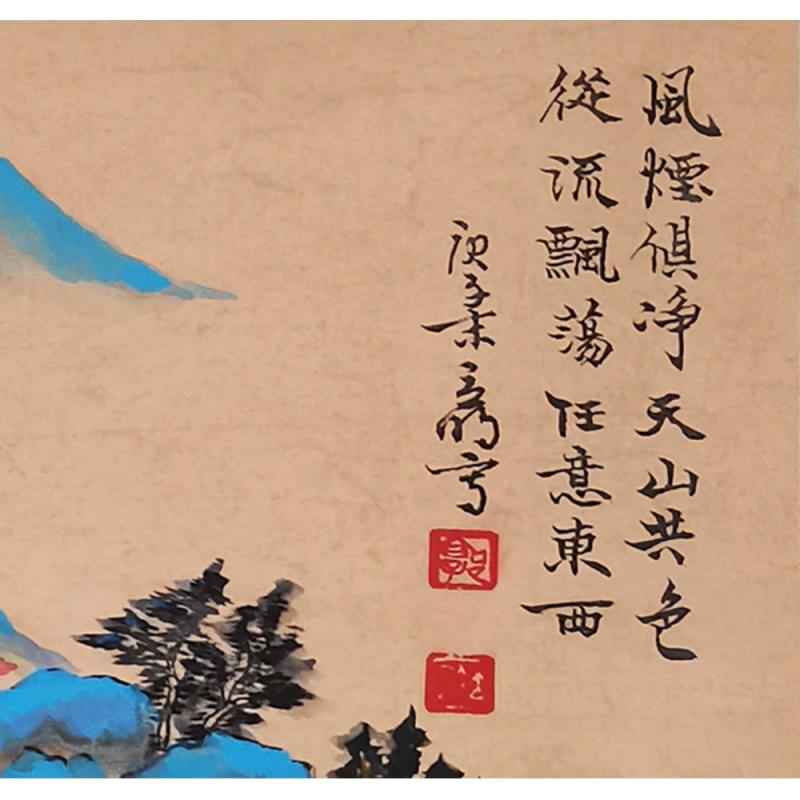 風煙俱净天山共色
從流飄蕩任意東西
庚子寫